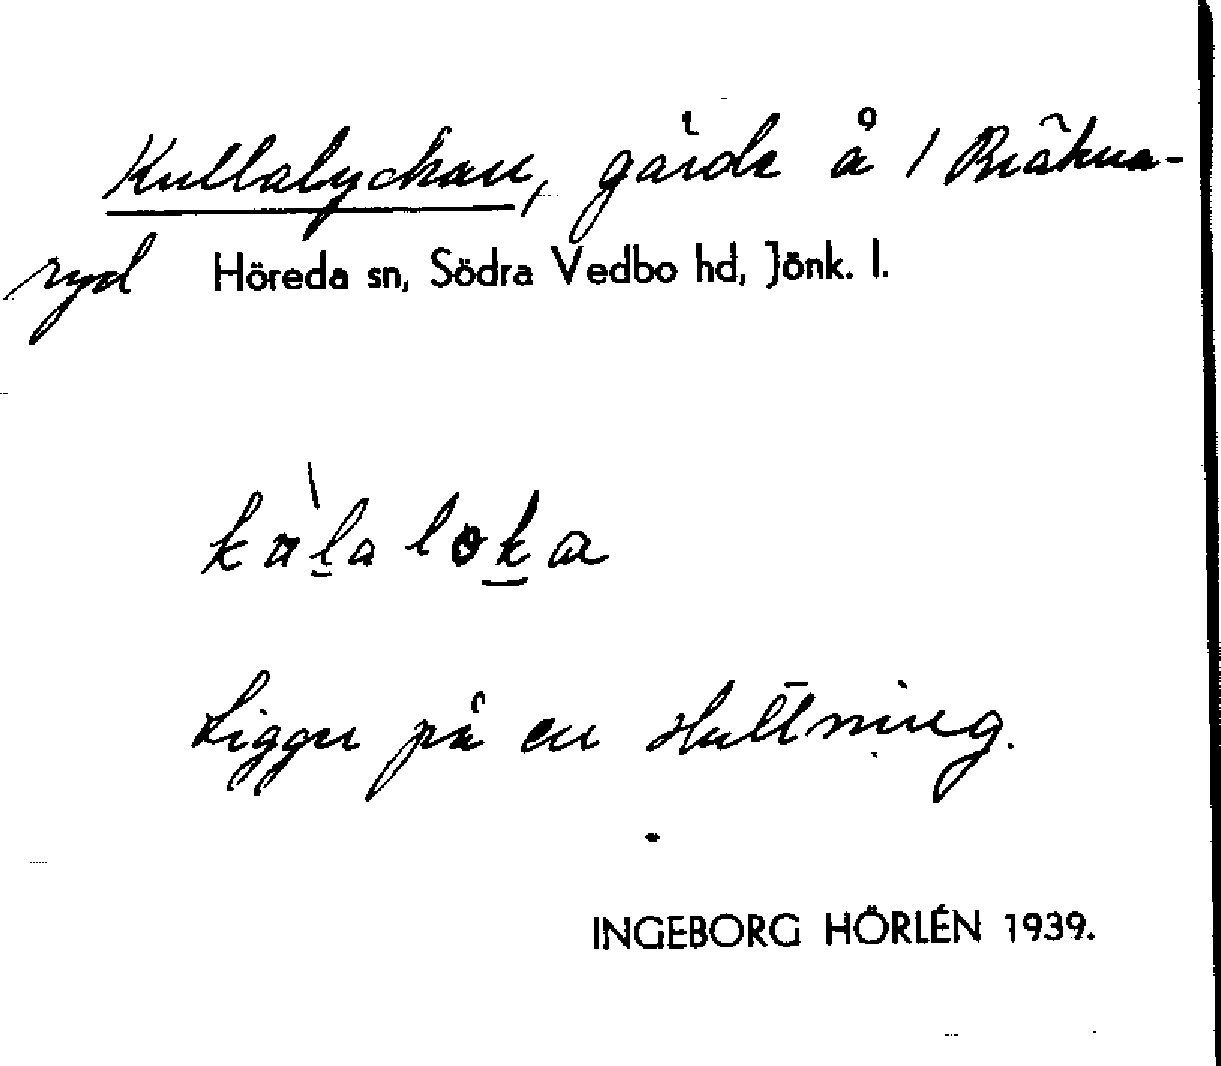 Kullalyckan, gärde å 1 Bräkna-
ryd Höreda sn, Södra Vedbo hd, Jönk. l.
Ligger på en sluttning.
INGEBORG HÖRLÉN 1939.